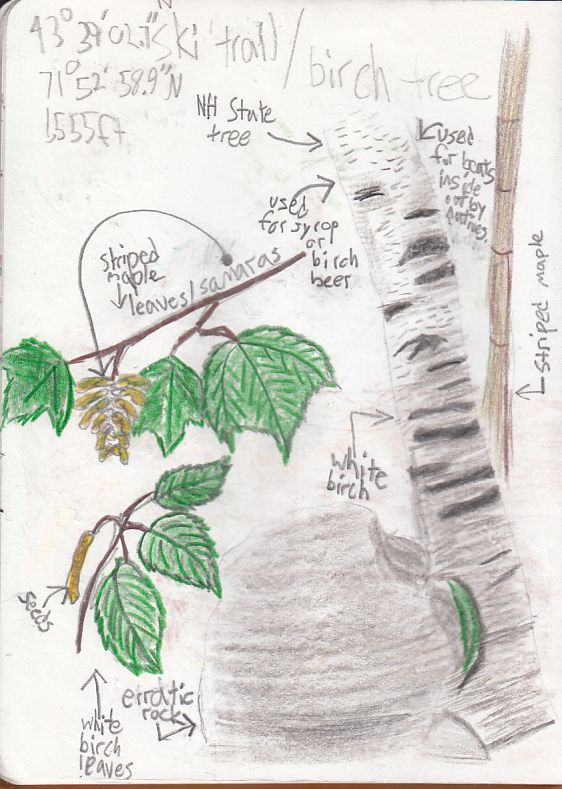 43° 39' 02.1" N ski trail / birch tree
71° 52' 58.9" N
1,555ft
NH State
tree
used
for boats
inside
out by
natives.
used
for syrop
or
birch
beer
striped
maple
leaves/samaras
striped maple
white
birch
seeds
erratic
rock
white
birch
leaves